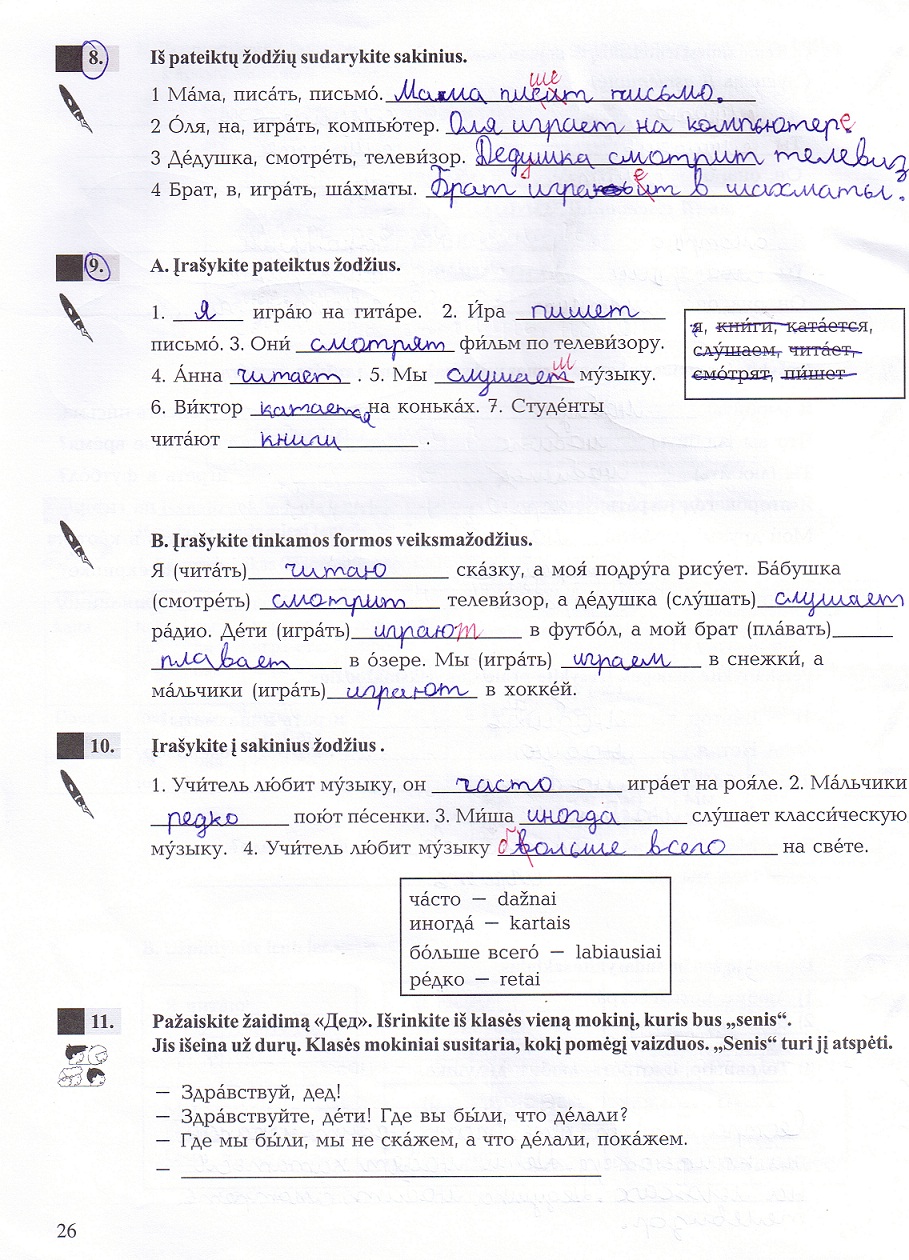 8. Iš pateiktų žodžių sudarykite sakinius.
1 Ма́ма, писа́ть, письмо́. Мама писит письмо. ше
2 О́ля, на, игра́ть, компью́тер. Оля играет на компьютере
3 Де́душка, смотре́ть, телеви́зор. Дедушка смотрит телевиз
4 Брат, в, игра́ть, ша́хматы. Брат играит в шахматы. е
9. A. Įrašykite pateiktus žodžius.
1. Я игра́ю на гита́ре. 2. И́ра пишет
письмо́. 3. Они́ смотрят фи́льм по телеви́зору.
4. А́нна читает . 5. Мы слушает му́зыку. м
6. Ви́ктор катается на конька́х. 7. Студе́нты
чита́ют книги .
я, кни́ги, ката́ется,
слу́шаем, чита́ет,
смо́трят, пи́шет
B. Įrašykite tinkamos formos veiksmažodžius.
Я (чита́ть) читаю ска́зку, а моя́ подру́га рису́ет. Ба́бушка
(смотре́ть) смотрит телеви́зор, а де́душка (слу́шать) слушает
ра́дио. Де́ти (игра́ть) играют в футбо́л, а мой брат (пла́вать)
плавает в о́зере. Мы (игра́ть) играем в снежки́, а
ма́льчики (игра́ть) играют в хокке́й.
10. Įrašykite į sakinius žodžius .
1. Учи́тель лю́бит му́зыку, он часто игра́ет на роя́ле. 2. Ма́льчики
редко пою́т пе́сенки. 3. Ми́ша иногда слу́шает класси́ческую
му́зыку. 4. Учи́тель лю́бит му́зыку больше всего на све́те.
ча́сто — dažnai
иногда́ — kartais
бо́льше всего́ — labiausiai
ре́дко — retai
11. Pažaiskite žaidimą «Дед». Išrinkite iš klasės vieną mokinį, kuris bus „senis“.
Jis išeina už durų. Klasės mokiniai susitaria, kokį pomėgį vaizduos. „Senis“ turi jį atspėti.
— Здра́вствуй, дед!
— Здра́вствуйте, де́ти! Где вы бы́ли, что де́лали?
— Где мы бы́ли, мы не ска́жем, а что де́лали, пока́жем.
—
26